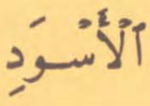 ٱلْأَسْوَدِ